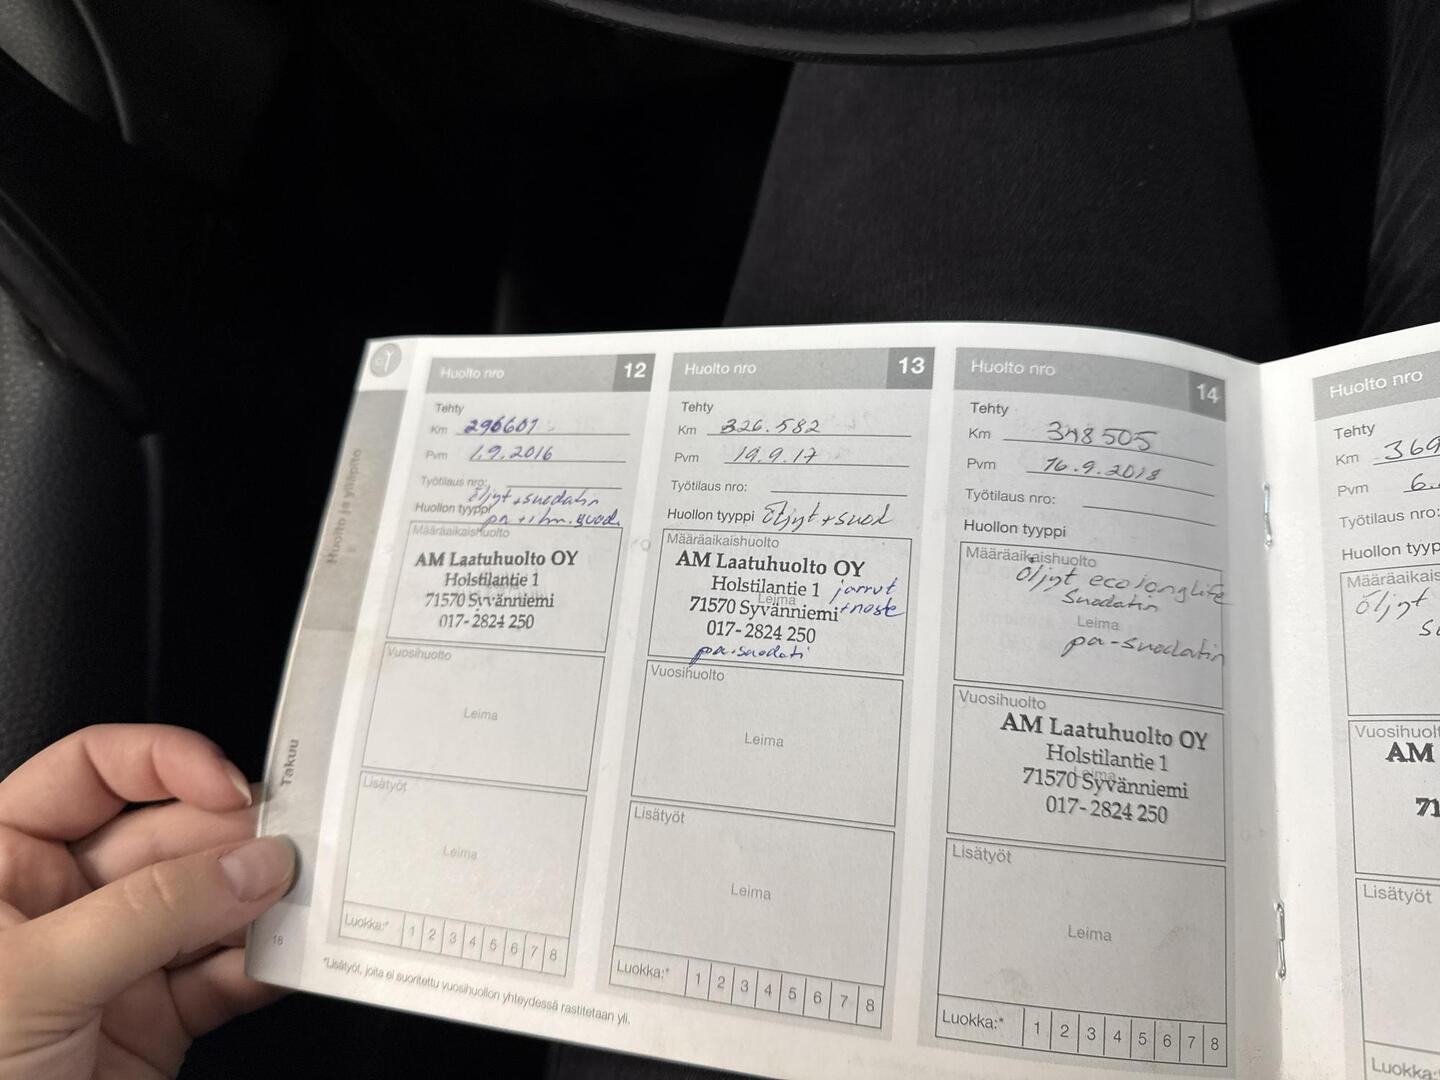 Huolto ja ylläpito
Takuu
18
Huolto nro 12
Tehty
Km 296601
Pvm 1.9.2016
Työtilaus nro:
öljyt + suodatin
Huollon tyyppi
pa + ilm.suod.
Määräaikaishuolto
AM Laatuhuolto OY
Holstilantie 1
71570 Syvänniemi
017- 2824 250
Vuosihuolto
Leima
Lisätyöt
Leima
Luokka:* 1 2 3 4 5 6 7 8
*Lisätyöt, joita ei suoritettu vuosihuollon yhteydessä rastitetaan yli.
Huolto nro 13
Tehty
Km 326.582
Pvm 19.9.17
Työtilaus nro:
Huollon tyyppi öljyt + suod
Määräaikaishuolto
AM Laatuhuolto OY
Holstilantie 1 jarrut
Leima
71570 Syvänniemi + noste
017- 2824 250
pa-suodati
Vuosihuolto
Leima
Lisätyöt
Leima
Luokka:* 1 2 3 4 5 6 7 8
Huolto nro 14
Tehty
Km 348505
Pvm 16.9.2018
Työtilaus nro:
Huollon tyyppi
Määräaikaishuolto
öljyt eco longlife
Suodatin
Leima
pa-suodatin
Vuosihuolto
AM Laatuhuolto OY
Holstilantie 1
71570 Syvänniemi
Leima
017- 2824 250
Lisätyöt
Leima
Luokka:* 1 2 3 4 5 6 7 8
Huolto nro
Tehty
Km 369
Pvm 6.
Työtilaus nro:
Huollon tyyp
Määräaikais
öljyt
su
Vuosihuolt
AM
71
Lisätyöt
Luokka:*